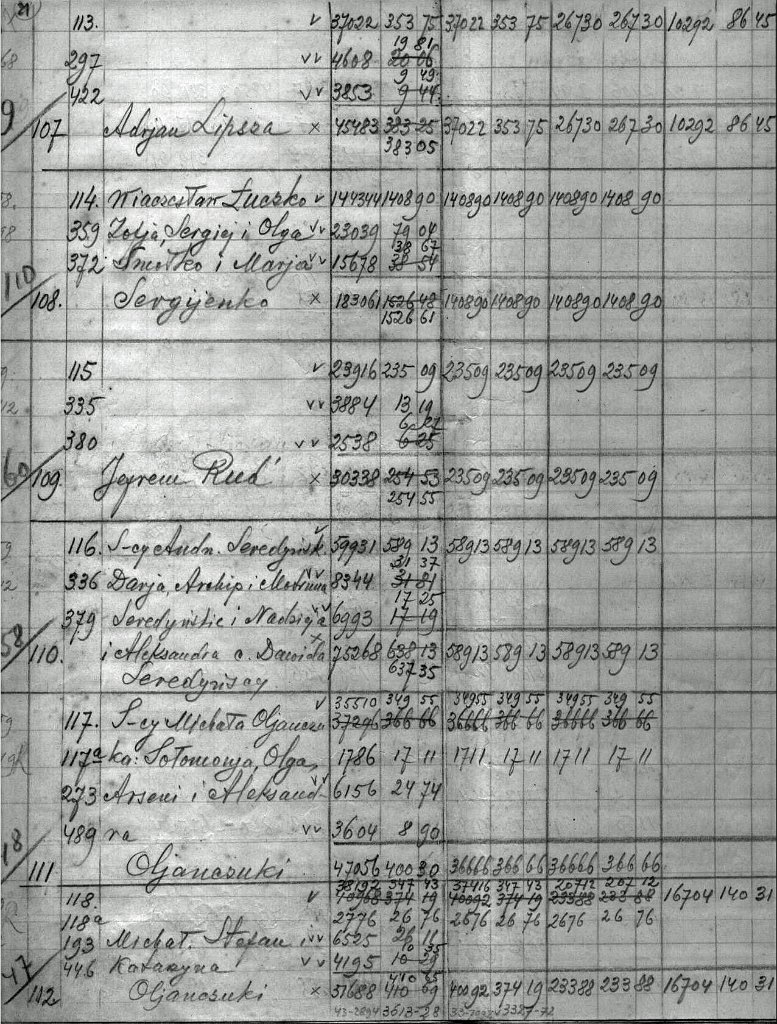 21 113. v 37022 353 75 37022 353 75 26730 267 30 10292 86 45
19 81
297 vv 4608 20 06
9 49
422 vv 3853 9 44
9/107 Adrjan Lipsza x 45483 383 25 37022 353 75 26730 267 30 10292 86 45
383 05
114. Wiaczesław Łuczko v 144344 1408 90 140890 1408 90 140890 1408 90
359 Zofja, Sergiej i Olga vv 23039 79 04
38 67
372 Smotko i Marja vv 15678 38 54
110/108. Sergijenko x 183061 1526 48 140890 1408 90 140890 1408 90
1526 61
115 v 23916 235 09 23509 235 09 23509 235 09
335 vv 3884 13 19
6 27
380 vv 2538 6 25
60/109. Jeyrem Rud' x 30338 254 53 23509 235 09 23509 235 09
254 55
116. S-cy Andr. Seredyńsk. v 59931 589 13 58913 589 13 58913 589 13
31 37
336 Darja, Archip i Motruna vv 8344 31 81
17 25
379 Seredyńskie i Nadzieja vv 6993 17 19
58/110. i Aleksandra c. Dawida x 75268 638 13 58913 589 13 58913 589 13
Seredyńscy 637 35
35510 349 55 34955 349 55 34955 349 55
117. S-cy Michała Oljanczu v 37296 366 66 36666 366 66 36666 366 66
117a ka: Sołomonja, Olga, 1786 17 11 1711 17 11 1711 17 11
273 Arseni i Aleksand- vv 6156 24 74
489 ra vv 3604 8 90
18/111 Oljanczuki 47056 400 30 36666 366 66 36666 366 66
38192 347 43 37416 347 43 20712 207 12
118. v 40968 374 19 40092 374 19 23388 233 88 16704 140 31
118a 2776 26 76 2676 26 76 2676 26 76
193 Michał, Stefan i vv 6525 26 11
10 35
446 Katarzyna vv 4195 10 29
410 65
47/112 Oljanczuki x 51688 410 69 40092 374 19 23388 233 88 16704 140 31